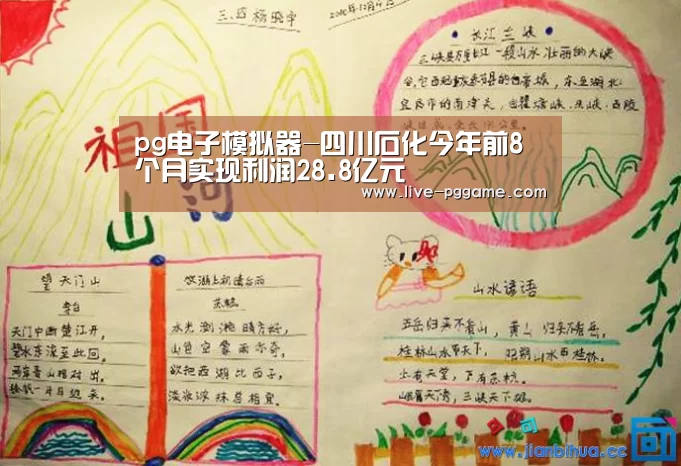 三、四 杨晓宇
长江三峡
三峡是万里长江一段山水壮丽的大峡
谷,它西起重庆奉节县的白帝城,东至湖北
宜昌市的南津关,由瞿塘峡、巫峡、西陵
祖国
山河
pg电子模拟器-四川石化今年前8
个月实现利润28.8亿元
www.live-pggame.com
望天门山
李白
天门中断楚江开,
碧水东流至此回。
两岸青山相对出,
孤帆一片日边来。
饮湖上初晴后雨
苏轼
水光潋滟晴方好,
山色空蒙雨亦奇。
欲把西湖比西子,
淡妆浓抹总相宜。
山水谚语
五岳归来不看山,黄山归来不看岳。
桂林山水甲天下,阳朔山水甲桂林。
上有天堂,下有苏杭。
峨眉天下秀,三峡天下雄。
www.jianbihua.cc